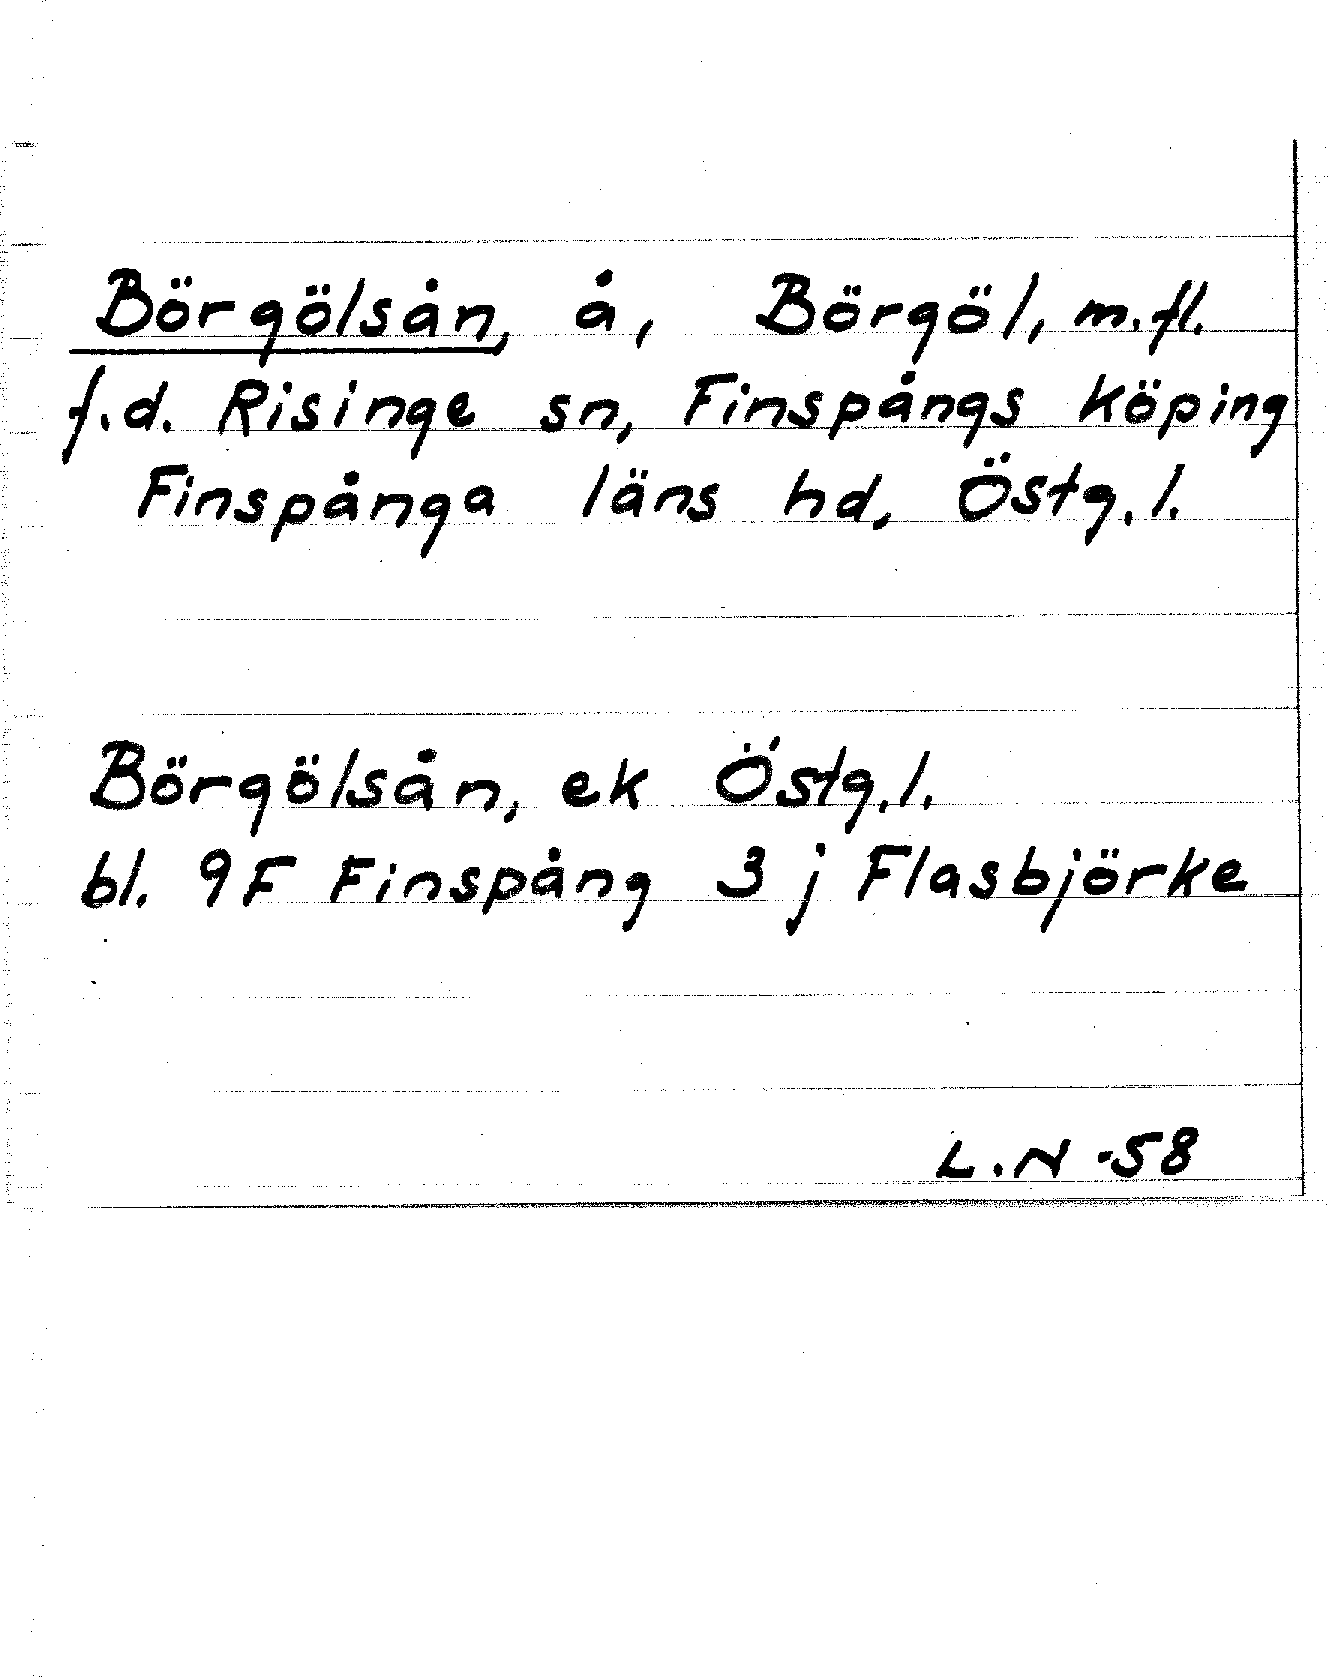 Börgölsån, å, Börgöl, m.fl.
f.d. Risinge sn, Finspångs köping
Finspånga läns hd, Östg.l.
Börgölsån, ek Östg.l.
bl. 9F Finspång 3 j Flasbjörke
L.N -58